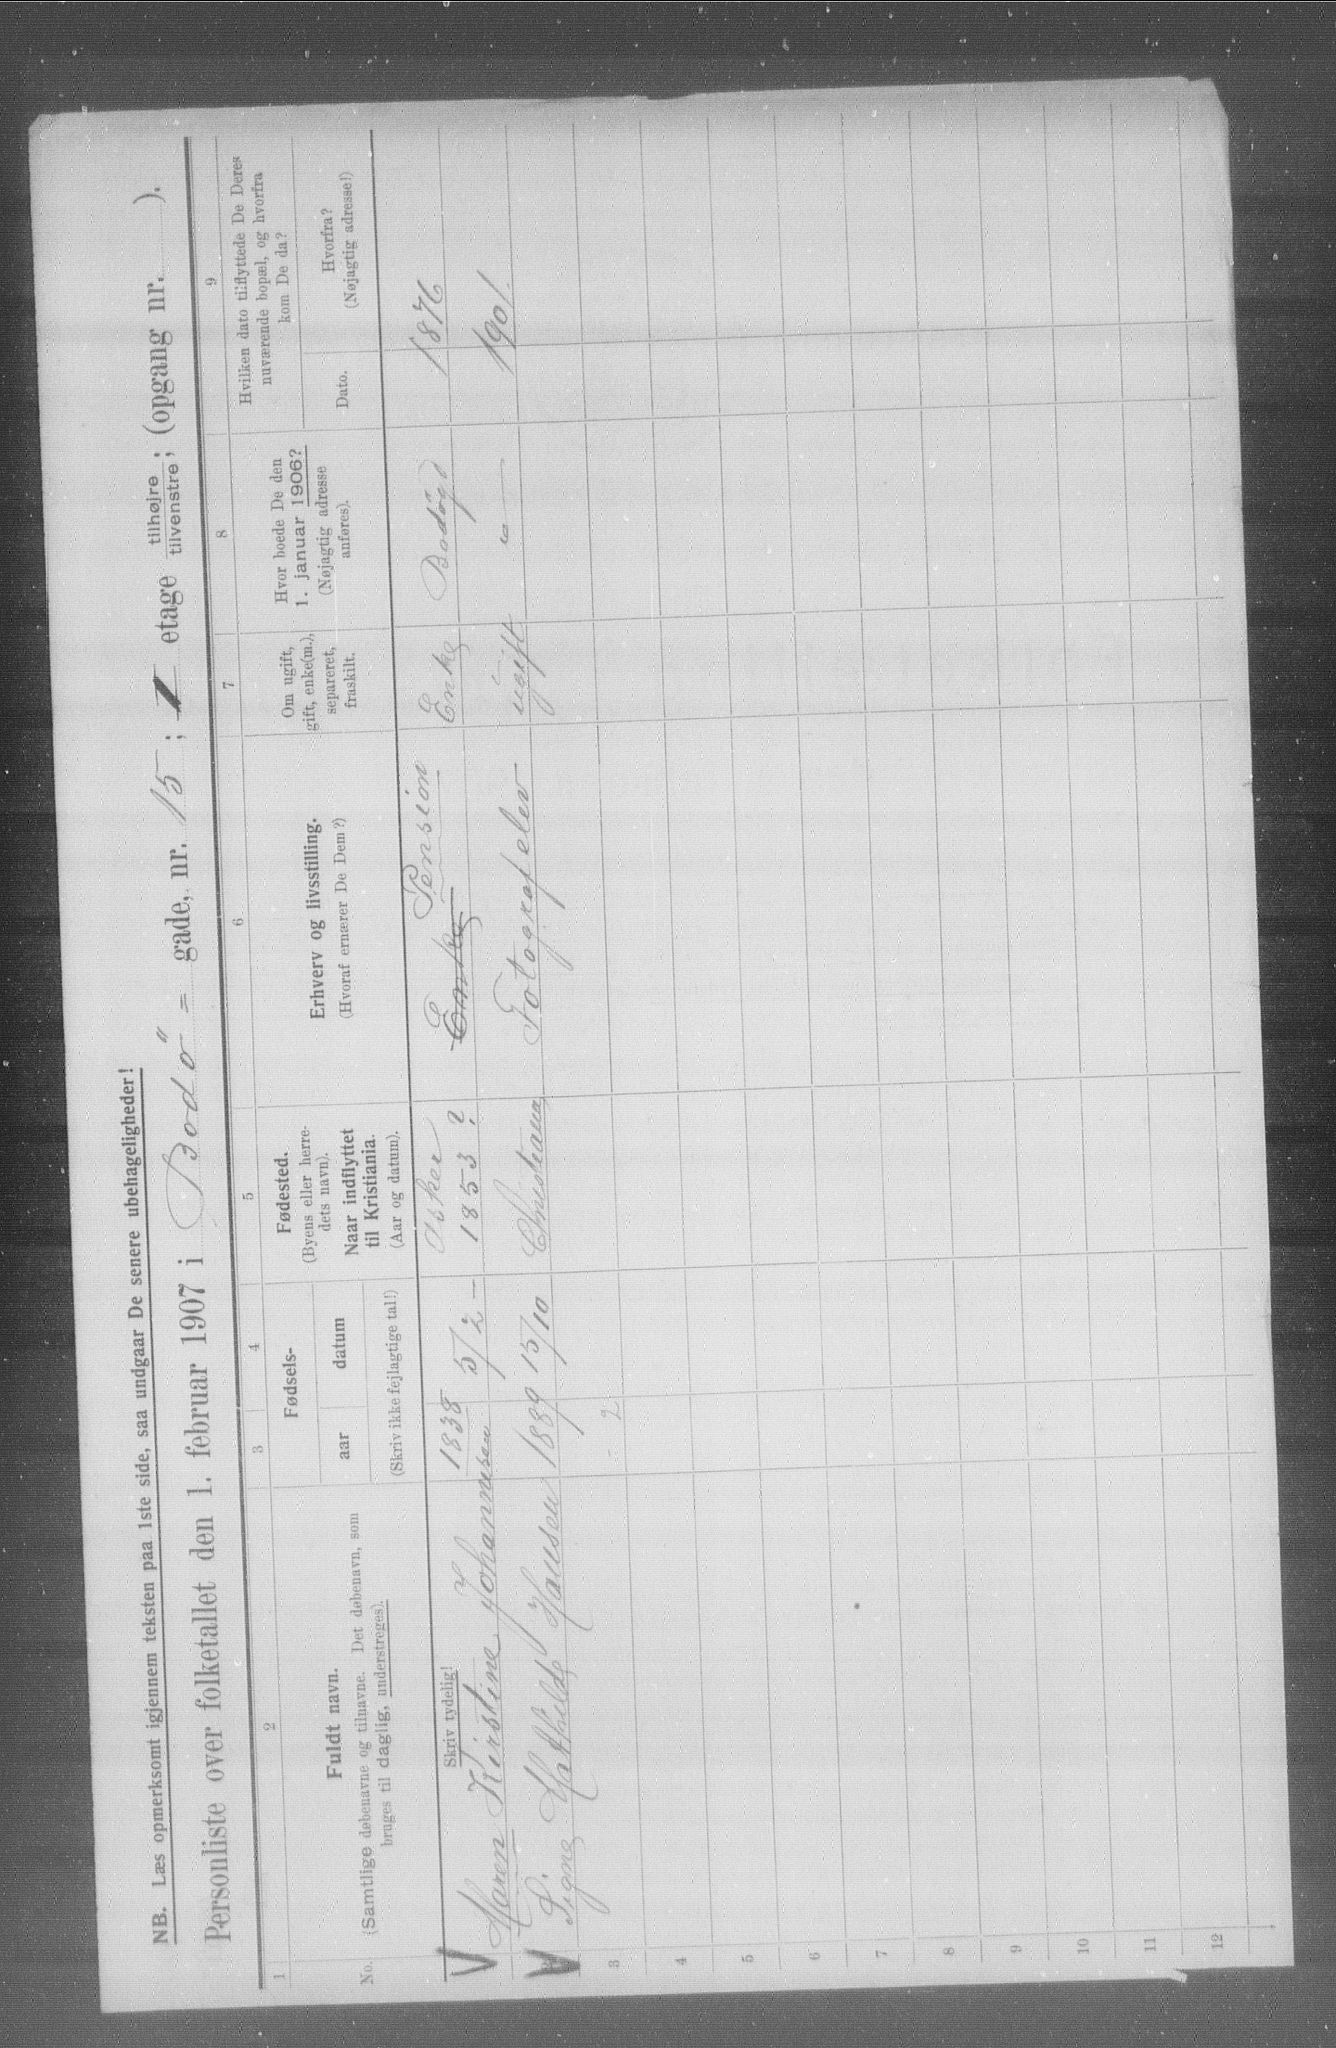 NB. Læs opmerksomt igjennem teksten paa 1ste side, saa undgaar De senere ubehageligheder!
Personliste over folketallet den 1. februar 1907 i Bodö = gade, nr. 15; 1 etage tilhøjre; tilvenstre; (opgang nr. ).
1 2 3 4 5 6 7 8 9
No.
Fuldt navn.
(Samtlige døbenavne og tilnavne. Det døbenavn, som
bruges til daglig, understreges).
Fødsels-
aar datum
(Skriv ikke fejlagtige tal!)
Fødested.
(Byens eller herre-
dets navn).
Naar indflyttet
til Kristiania.
(Aar og datum).
Erhverv og livsstilling.
(Hvoraf ernærer De Dem?)
Om ugift,
gift, enke(m.),
separeret,
fraskilt.
Hvor boede De den
1. januar 1906?
(Nøjagtig adresse
anføres).
Hvilken dato tilflyttede De Deres
nuværende bopæl, og hvorfra
kom De da?
Dato.
Hvorfra?
(Nøjagtig adresse!)
Skriv tydelig!
Maren Kirstine Johannesen 1838 5/2 - Asker 1853? Enke Pension Enke Bodögd 1876
Signe Mathilde Hansen 1889 15/10 Christiania Fotografelev ugift " — 1901.
3 - 2
4
5
6
7
8
9
10
11
12